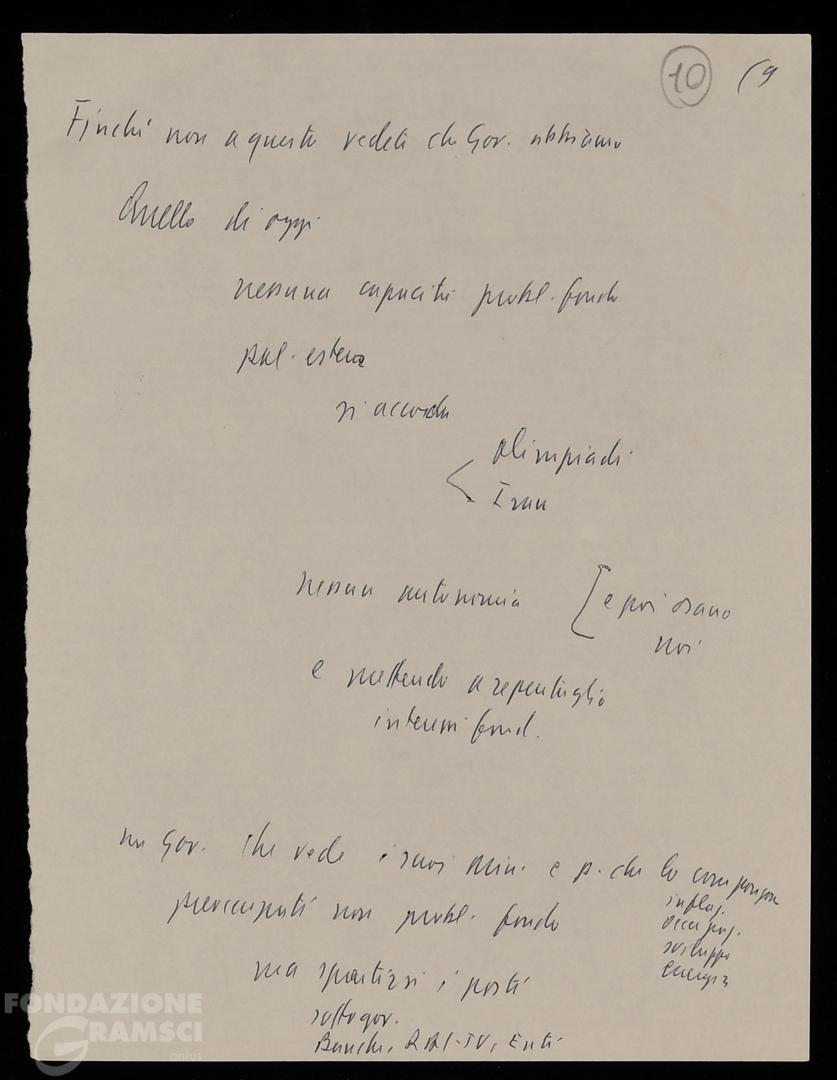 10 (9
Finché non a questo vedete che Gov. abbiamo
Quello di oggi
nessuna capacità probl. fondo
pol. estera
si accoda
Olimpiadi
Iran
nessuna autonomia
e poi osano
noi
e mettendo a repentaglio
interessi fond.
un Gov. che vede i suoi Min. e p. che lo compongono
preoccupati non probl. fondo
inflaz.
occupaz.
sviluppo
energia
ma spartirsi i posti
sottogov.
Banche, RAI-TV, Enti
FONDAZIONE
GRAMSCI
onlus